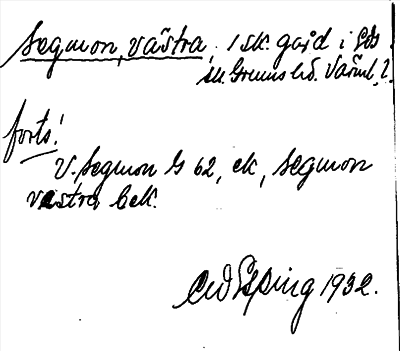 Segmon, västra, 1 sk. gård i Eds
sn. Grums hd. Värml. l.
forts!
V. Segmon G 62, ek, Segmon
västra bek.
1932.